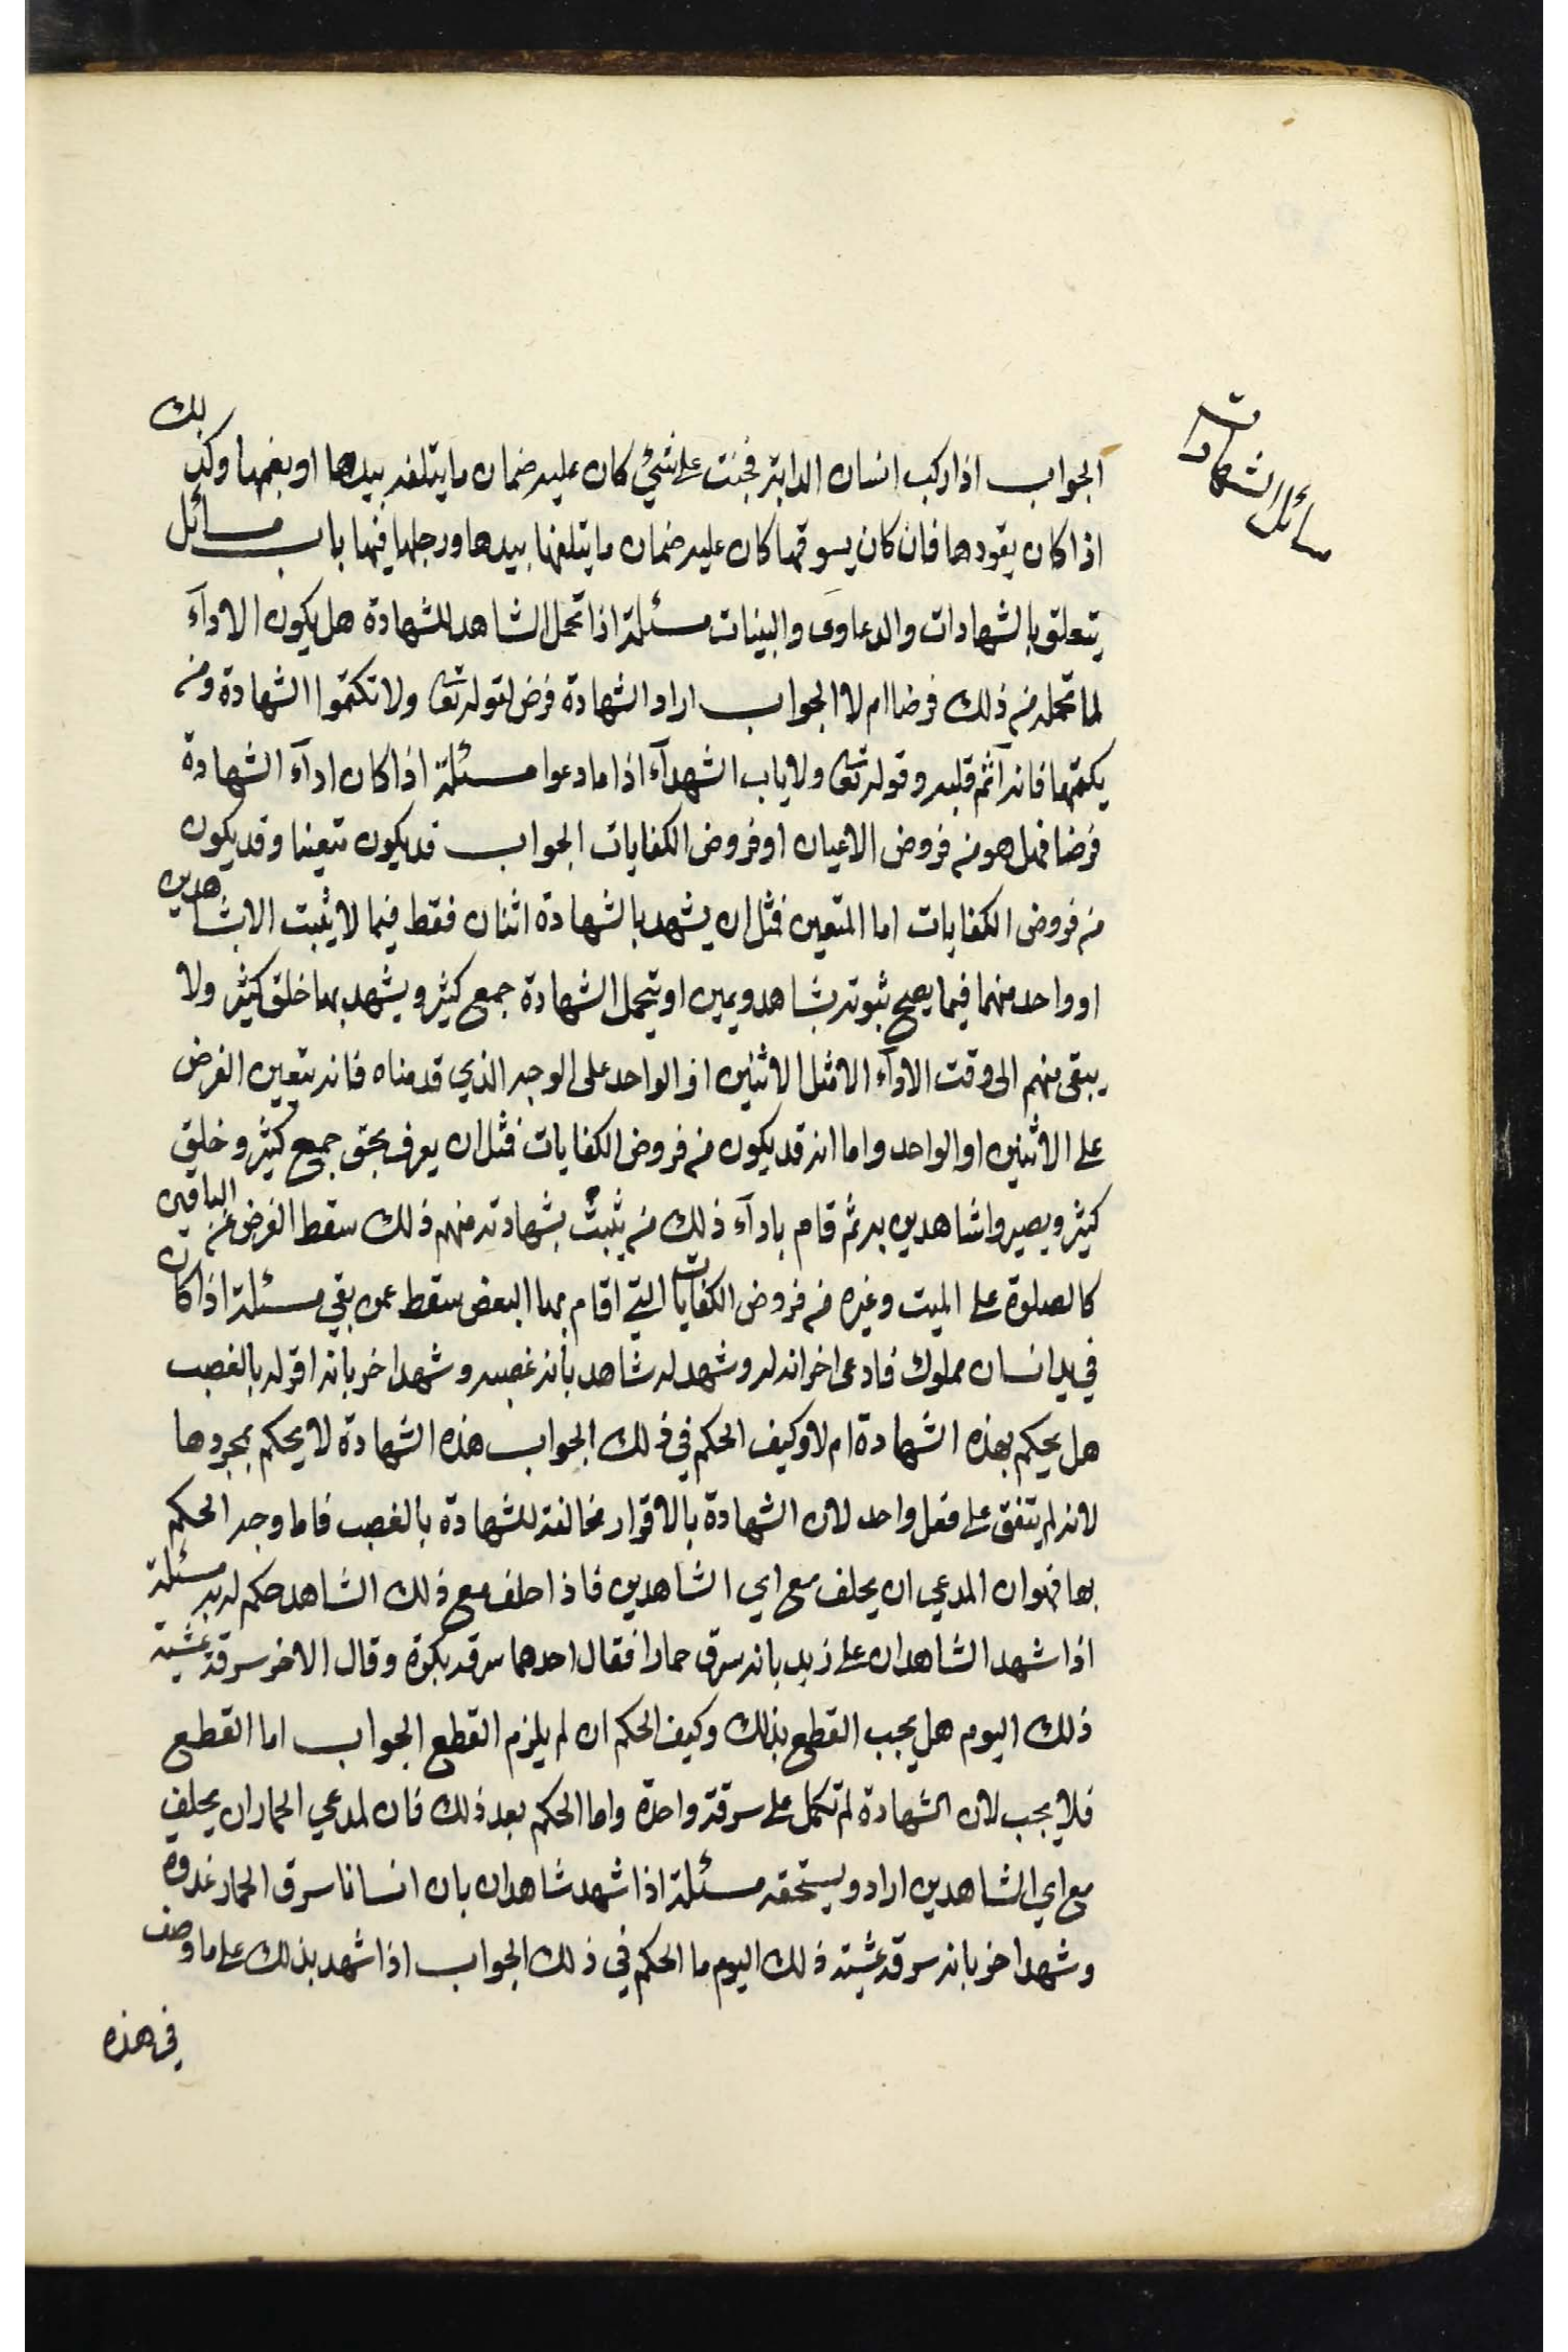 مسائل الشهادات
الجواب اذا ركب انسان الدابة فجنت على شئ كان عليه ضمان ما يتلفه بيدها او بفمها وكذلك
اذا كان يقودها فان كان يسوقها كان عليه ضمان ما يتلفها بيدها ورجلها فيها باب مسائل
يتعلق بالشهادات والدعاوى والبينات مسئلة اذا تحمل الشاهد للشهادة هل يكون الادآء
لما تحمله من ذلك فرضا ام لا الجواب اراد الشهادة فرض لقوله تعا ولا تكتموا الشهادة ومن
يكتمها فانه آثم قلبه وقوله تعا ولا ياب الشهدآء اذا ما دعوا مسئلة اذا كان ادآء الشهادة
فرضا فهل هو من فروض الاعيان او فروض الكفايات الجواب قد يكون متعينا وقد يكون
من فروض الكفايات اما المتعين فمثل ان يشهد بالشهادة اثنان فقط فيما لا يثبت الا بشاهدين
او واحد منهما فيما يصح ثبوته بشاهد ويمين او يتحمل الشهادة جمع كثير ويشهد بها خلق كثير ولا
يبقى منهم الى وقت الادآء الا مثل الاثنين او الواحد على الوجه الذي قدمناه فانه يتعين الفرض
على الاثنين او الواحد واما انه قد يكون من فروض الكفايات فمثل ان يعرف بحق جمع كثير وخلق
كثير ويصيروا شاهدين به ثم قام بادآء ذلك من يثبت بشهادته منهم ذلك سقط الفرض عن الباقين
كالصلوة على الميت وغيره من فروض الكفايات التي اقام بها البعض سقط عمن بقي مسئلة اذا كان
في يد انسان مملوك فادعى اخر انه له وشهد له شاهد بأنه غصبه وشهد اخر بانه اقر له بالغصب
هل يحكم بهذه الشهادة ام لا وكيف الحكم في ذلك الجواب هذه الشهادة لا يحكم بمجردها
لانه لم يتفق على فعل واحد لان الشهادة بالاقرار مخالفة للشهادة بالغصب فاما وجه الحكم
بها فهو ان المدعي ان يحلف مع اي الشاهدين فاذا حلف مع ذلك الشاهد حكم له به مسئلة
اذا شهد الشاهدان على زيد بانه سرق حمارا فقال احدهما سرقه بكرة وقال الاخر سرقه عشية
ذلك اليوم هل يجب القطع بذلك وكيف الحكم ان لم يلزم القطع الجواب اما القطع
فلا يجب لان الشهادة لم تكمل على سرقة واحدة واما الحكم بعد ذلك فان لمدعي الحمار ان يحلف
مع اي الشاهدين اراد ويستحقه مسئلة اذا شهد شاهدان بان انسانا سرق الحمار غدوة
وشهد اخر بانه سرقه عشية ذلك اليوم ما الحكم في ذلك الجواب اذا شهد بذلك على ما وصف
في هذه